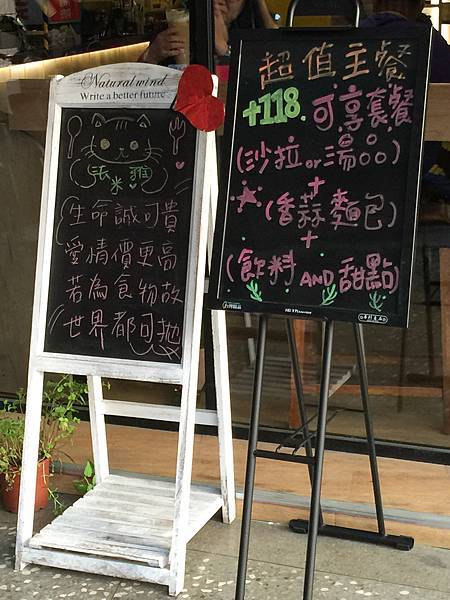 Natural wind
Write a better future
法米雅
生命誠可貴
愛情價更高
若為食物故
世界都可拋
超值主餐
+118.可享套餐
(沙拉or湯)
+
(香蒜麵包)
+
(飲料 AND 甜點)